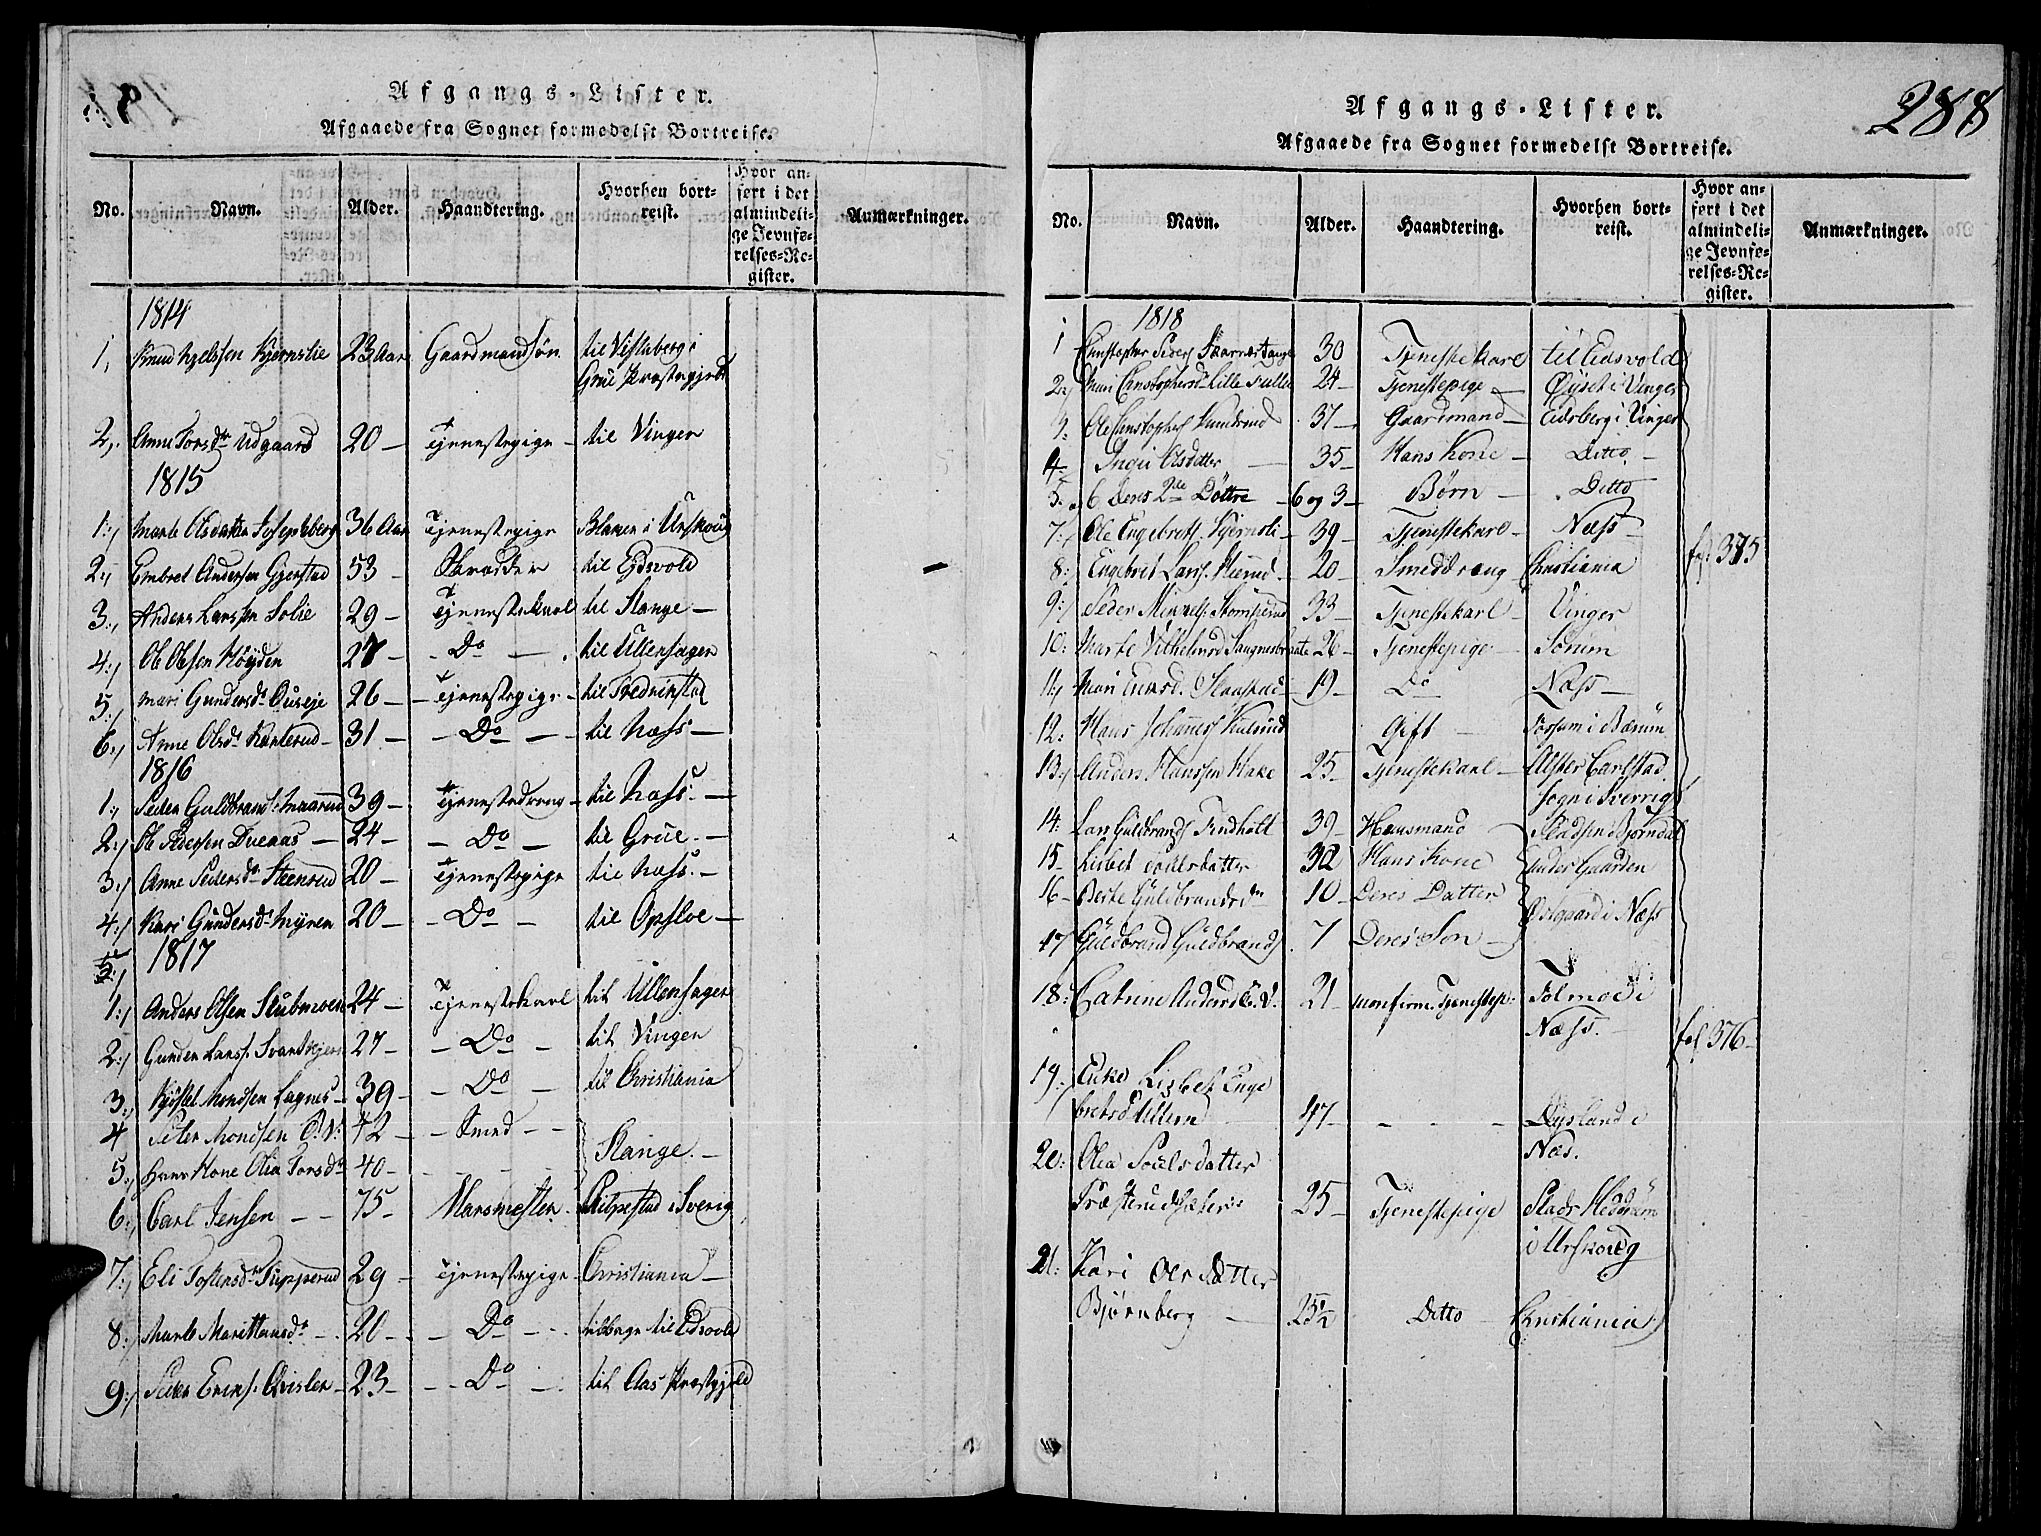 Afgangs-Lister.
Afgaaede fra Sognet formedelst Bortreise.
No. Navn. Alder. Haandtering. Hvorhen bortreist. Hvor anført i det almindelige Jevnførelses-Register. Anmærkninger.
1814
1, Knud Kjelssen Kjernslie 23 Aar Gaardmandsøn til Vestaberg i
Grue Præstegjeld
2, Anne Torsdtr Udgaard 20 – Tjenestepige – til Vinger
1815
1:/ Marte Olsdatter Josephsberg 36 Aar Tjenestepige Blaker i Urskoug
2:/ Embret Andersen Gjerstad 53 – Skrædder til Edsvold
3:/ Anders Larssen Solie 29 – Tjenestekarl til Stange –
4:/ Ole Olsen Høyden 27 – – Do – til Ullensager
5:/ Mari Gundersdr Ouseje 26 – – Tjenestepige – til Fredrikstad
6:/ Anne Olsdr Karterud – 31 – – Do – til Næss –
1816
1:/ Peder Guldbrands: Maarud 39 – Tjenestedreng – til Næss. –
2:/ Ole Pedersen Dueaas – 24 – – Do – til Grue. –
3:/ Anne Pedersdr Steenrud 20 – Tjenestepige til Næss. –
4:/ Kari Gundersdr Myren 20 – – Do – til Opsloe –
1817
1:/ Anders Olsen Stubmoen 24 – Tjenestekarl til Ullensager
2:/ Gunder Larss. Svartkjern 27 – – Do – til Vinger
3:/ Kjøstel Mondsen Lagnes – 39 – – Do – til Christiania
4 Peter Mondsen O.V. 42 – – Smed – –
5:/ Hans Kone Olia Torsdr 40 – Stange. –
6:/ Carl Jensen – – 75 – Marsmester i Sverig
7:/ Eli Tostensdr Tupperud 29 – Tjenestepige – Christiania –
8:/ Marte Martinsdr – 20 – – Do – – tilbage til Edsvold
9:/ Peder Erens. Qvisler – 23 – – Do – til Aas Præstegjeld
288
Afgangs-Lister.
Afgaaede fra Sognet formedelst Bortreise.
No. Navn. Alder. Haandtering. Hvorhen bortreist. Hvor anført i det almindelige Jevnførelses-Register. Anmærkninger.
1818
1 Christopher Peders Skarnestange 30 Tjenestekarl til Eidsvold
2:/ Mari Christophersd. Lille Fuller 24 – Tjenestepige – Øyset i Vinger
3: Ole Christophers 37 – Gaardmand – Eidsberg i Vinger
4: Inger Olsdatter – 35 – Hans Kone – Ditto –
5. 6 Deres 2de Døttre – 6 og 3 – Børn – Ditto
7:/ Ole Engebrets. Kjernsli – 39 – Tjenestekarl – Næss –
8:/ Engebret Larss. – 20 – Smeddreng Christiania fol 375
9:/ Peder Mikkels. 33 – Tjenestekarl – Vinger
10: Marte Vilhelmsd Sangnesbraate 26 – Tjenestepige – Sørum
11:/ Mari Eriksd. Slaastad – 19 – Do Næss –
12: Hans Johannes Gift – Fossum i Bærum
13:/ Anders Hanssen Hake 25 – Tjenestekarl – Alster Carlstad
sogn i Sverrig
14: Lars Guldbrands Findholt 39 – Huusmand Pladsen Bjørndal
15 – Lisbet Poulsdatter 32 Hans Kone under Gaarden
16 – Berte Guldbrandsdr 10 – Deres Datter
17 Guldbrand Guldbrands 7 Deres Søn – Østgaard i Næss
18: Catrine Andersd O.V. 21 – Tjenestepi: Tolmoe i
Næss. – fol 376 –
19:/ Enke Lisbet Enge
bretsd Ullern 47 – – – – Dysland i
Næs.
20: Olea Poulsdatter
Præsterudsæter 25 – Tjenestepige Plads Hedrum
i Urskoug
21: Kari Olsdatter
Bjørnberg – 25½ Ditto Christiania